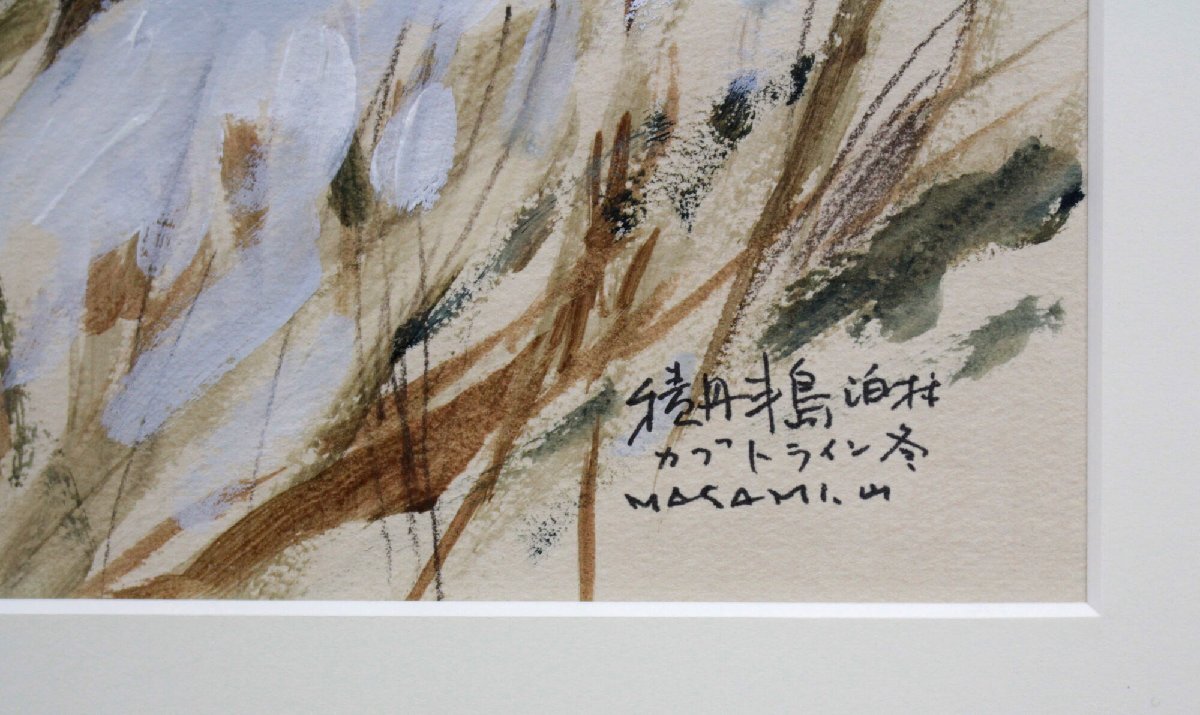 積丹半島泊村
カブトライン冬
MASAMI.山